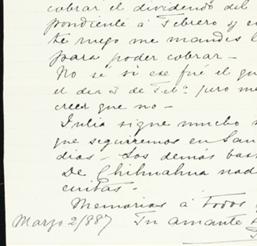 cobrar el dividendo del
pondiente á Febrero y en
te ruego me mandes l
para poder cobrar.-
No sé si ese fué el qu
el der á de Feb.º pero me
creer que no-
Julia sigue mucho m
que seguiremos en San
dias- Los demas bas
De Chihuahua nad
ciritas-
Memorias á todos y
Marzo 2/887 Tu amante